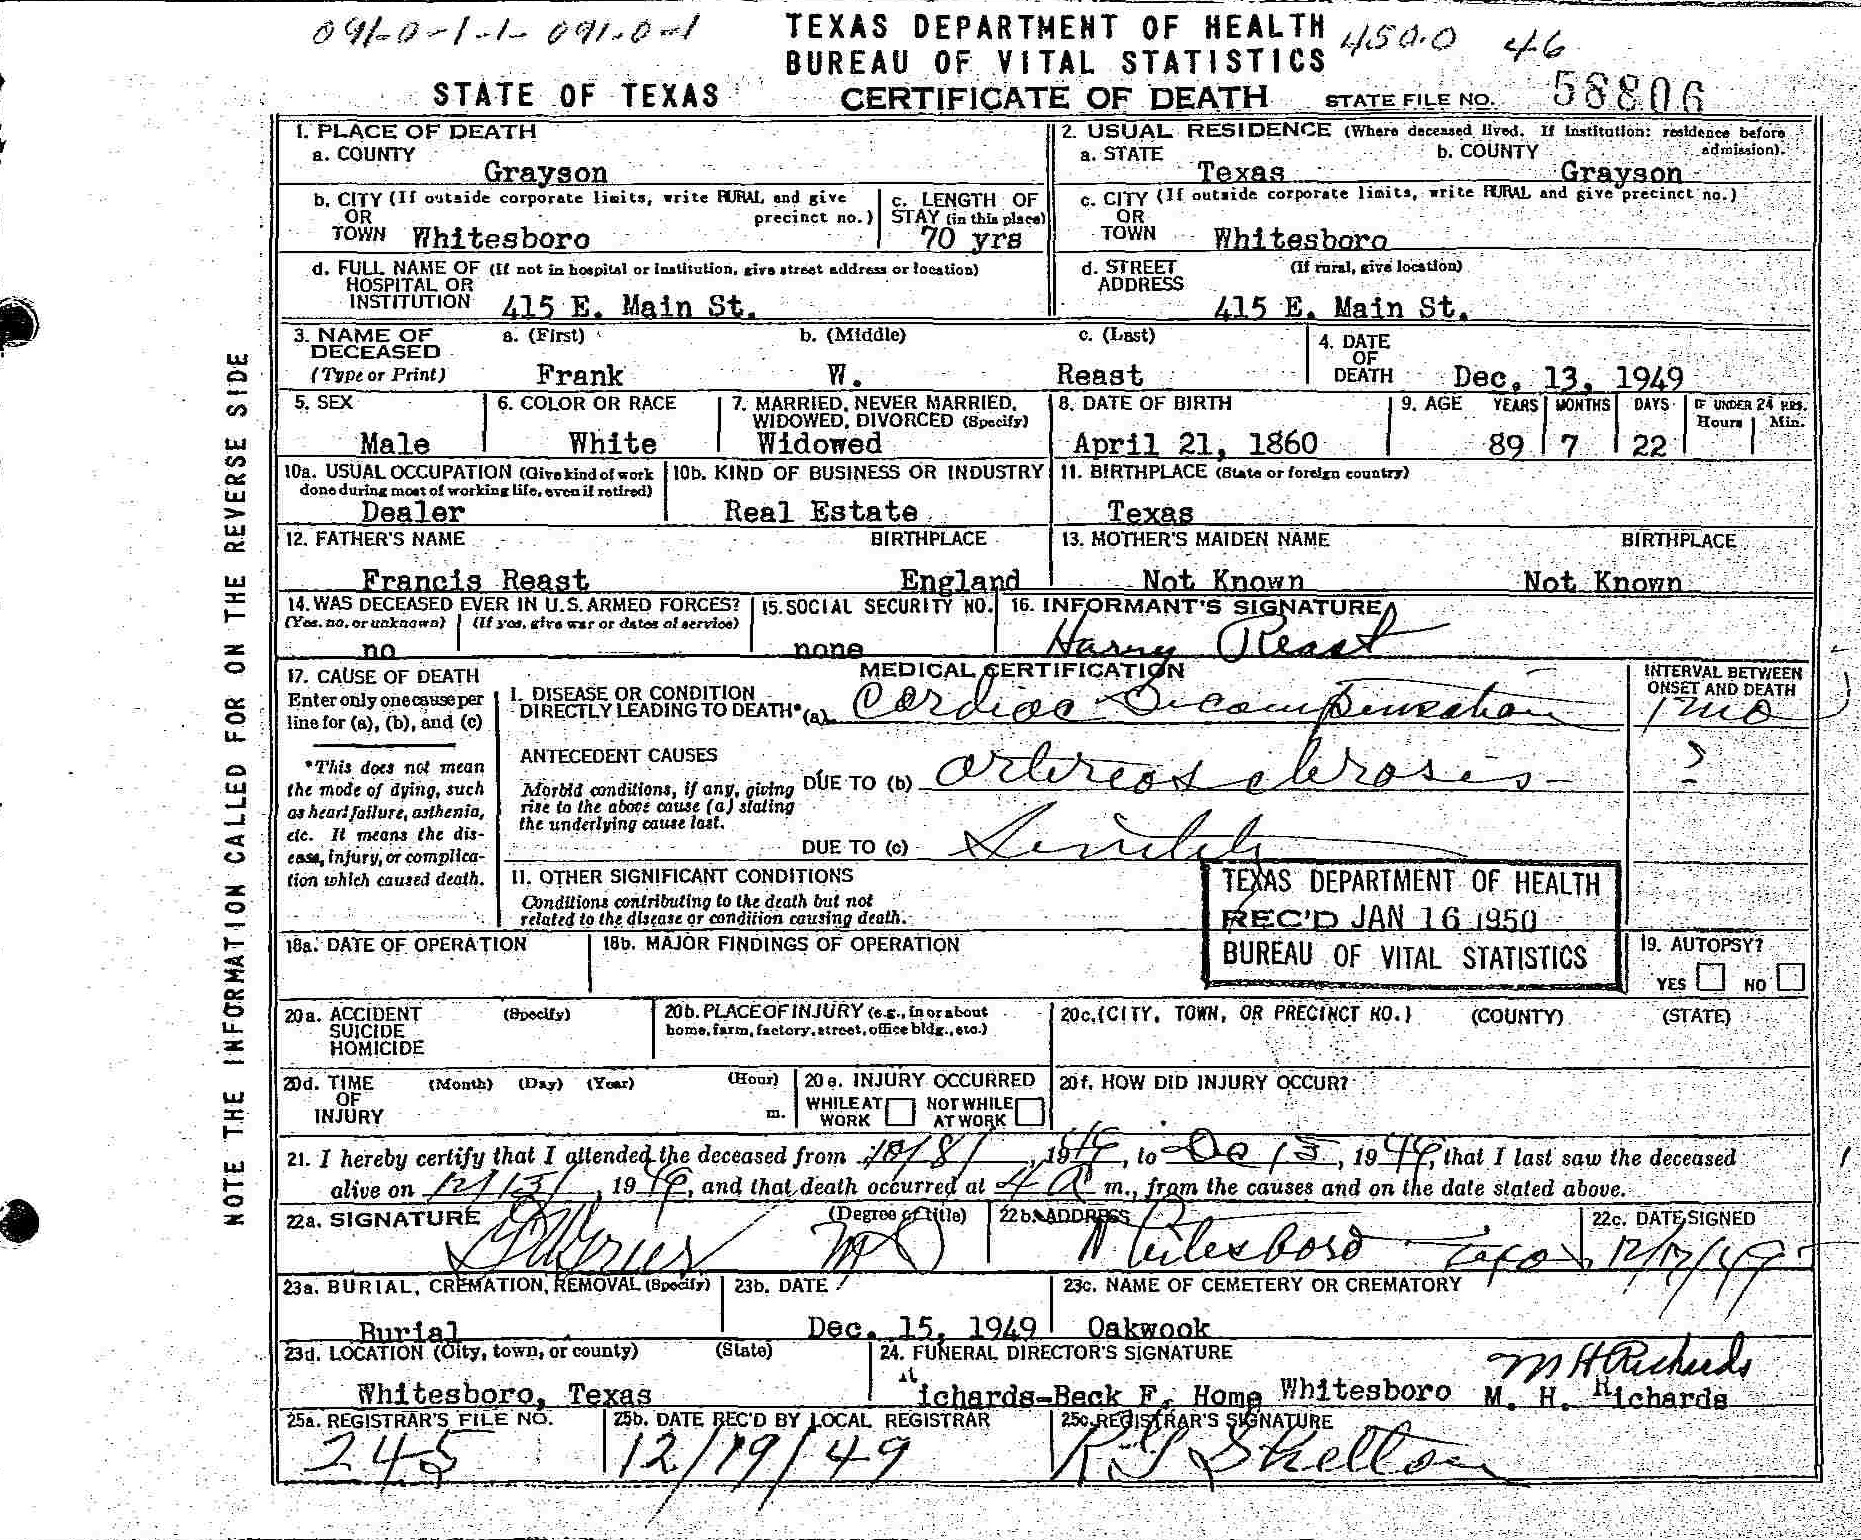 091-0-1-1- 091.0-1
TEXAS DEPARTMENT OF HEALTH
450.0 46
BUREAU OF VITAL STATISTICS
STATE OF TEXAS CERTIFICATE OF DEATH STATE FILE NO. 58806
NOTE THE INFORMATION CALLED FOR ON THE REVERSE SIDE
1. PLACE OF DEATH
a. COUNTY
Grayson
2. USUAL RESIDENCE (Where deceased lived. If institution: residence before admission).
a. STATE b. COUNTY
Texas Grayson
b. CITY (If outside corporate limits, write RURAL and give precinct no.)
OR
TOWN Whitesboro
c. LENGTH OF
STAY (in this place)
70 yrs
c. CITY (If outside corporate limits, write RURAL and give precinct no.)
OR
TOWN Whitesboro
d. FULL NAME OF (If not in hospital or institution, give street address or location)
HOSPITAL OR
INSTITUTION 415 E. Main St.
d. STREET (If rural, give location)
ADDRESS
415 E. Main St.
3. NAME OF a. (First) b. (Middle) c. (Last)
DECEASED
(Type or Print) Frank W. Reast
4. DATE
OF
DEATH Dec. 13, 1949
5. SEX
Male
6. COLOR OR RACE
White
7. MARRIED, NEVER MARRIED,
WIDOWED, DIVORCED (Specify)
Widowed
8. DATE OF BIRTH
April 21, 1860
9. AGE YEARS MONTHS DAYS IF UNDER 24 HRS.
Hours Min.
89 7 22
10a. USUAL OCCUPATION (Give kind of work
done during most of working life, even if retired)
Dealer
10b. KIND OF BUSINESS OR INDUSTRY
Real Estate
11. BIRTHPLACE (State or foreign country)
Texas
12. FATHER'S NAME BIRTHPLACE
Francis Reast England
13. MOTHER'S MAIDEN NAME BIRTHPLACE
Not Known Not Known
14. WAS DECEASED EVER IN U.S. ARMED FORCES?
(Yes, no, or unknown) (If yes, give war or dates of service)
no
15. SOCIAL SECURITY NO.
none
16. INFORMANT'S SIGNATURE
Harry Reast
17. CAUSE OF DEATH
Enter only one cause per
line for (a), (b), and (c)
*This does not mean
the mode of dying, such
as heart failure, asthenia,
etc. It means the dis-
ease, injury, or complica-
tion which caused death.
MEDICAL CERTIFICATION
I. DISEASE OR CONDITION
DIRECTLY LEADING TO DEATH* (a) Cardiac Decompensation
INTERVAL BETWEEN
ONSET AND DEATH
1 mo
ANTECEDENT CAUSES
Morbid conditions, if any, giving
rise to the above cause (a) stating
the underlying cause last.
DUE TO (b) arteriosclerosis ?
DUE TO (c) Senility
II. OTHER SIGNIFICANT CONDITIONS
Conditions contributing to the death but not
related to the disease or condition causing death.
TEXAS DEPARTMENT OF HEALTH
REC'D JAN 16 1950
BUREAU OF VITAL STATISTICS
18a. DATE OF OPERATION
18b. MAJOR FINDINGS OF OPERATION
19. AUTOPSY?
YES NO
20a. ACCIDENT (Specify)
SUICIDE
HOMICIDE
20b. PLACE OF INJURY (e.g., in or about
home, farm, factory, street, office bldg., etc.)
20c. (CITY, TOWN, OR PRECINCT NO.) (COUNTY) (STATE)
20d. TIME (Month) (Day) (Year) (Hour)
OF
INJURY m.
20e. INJURY OCCURRED
WHILE AT WORK NOT WHILE AT WORK
20f. HOW DID INJURY OCCUR?
21. I hereby certify that I attended the deceased from 10/8/, 1949, to Dec 13, 1949, that I last saw the deceased
alive on 12/13/, 1949, and that death occurred at 4 A m., from the causes and on the date stated above.
22a. SIGNATURE (Degree or title)
MD
22b. ADDRESS
Whitesboro Texas
22c. DATE SIGNED
12/17/49
23a. BURIAL, CREMATION, REMOVAL (Specify)
Burial
23b. DATE
Dec. 15, 1949
23c. NAME OF CEMETERY OR CREMATORY
Oakwook
23d. LOCATION (City, town, or county) (State)
Whitesboro, Texas
24. FUNERAL DIRECTOR'S SIGNATURE
M H Richards
Richards-Beck F. Home Whitesboro M. H. Richards
25a. REGISTRAR'S FILE NO.
245
25b. DATE REC'D BY LOCAL REGISTRAR
12/19/49
25c. REGISTRAR'S SIGNATURE
Shelton